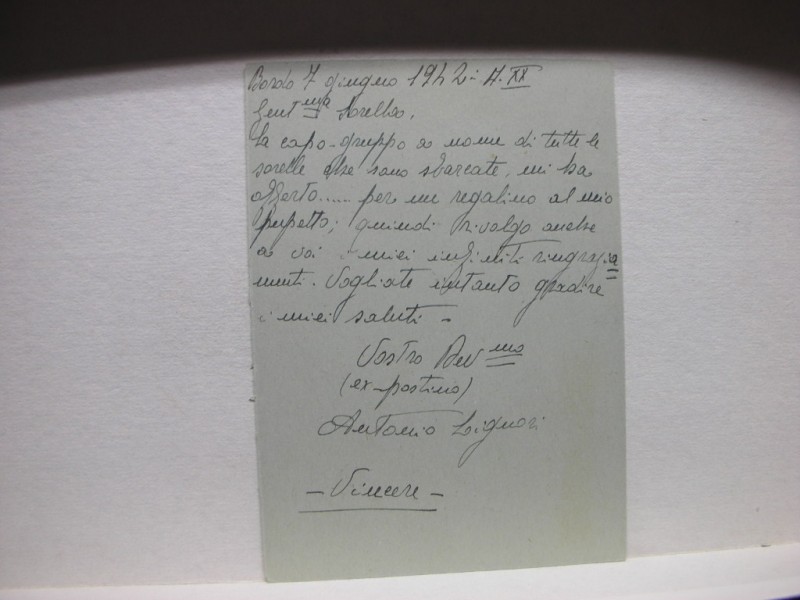 Bordo 7 giugno 1942 - A. XX
Gent.ma Sorella,
La capo-gruppo a nome di tutte le
sorelle che sono sbarcate, mi ha
offerto..... per un regalino al mio
pupetto; quindi rivolgo anche
a voi i miei infiniti ringrazia
menti. Vogliate intanto gradire
i miei saluti -
Vostro Dev.mo
(ex-postino)
Antonio Liguori
- Vincere -